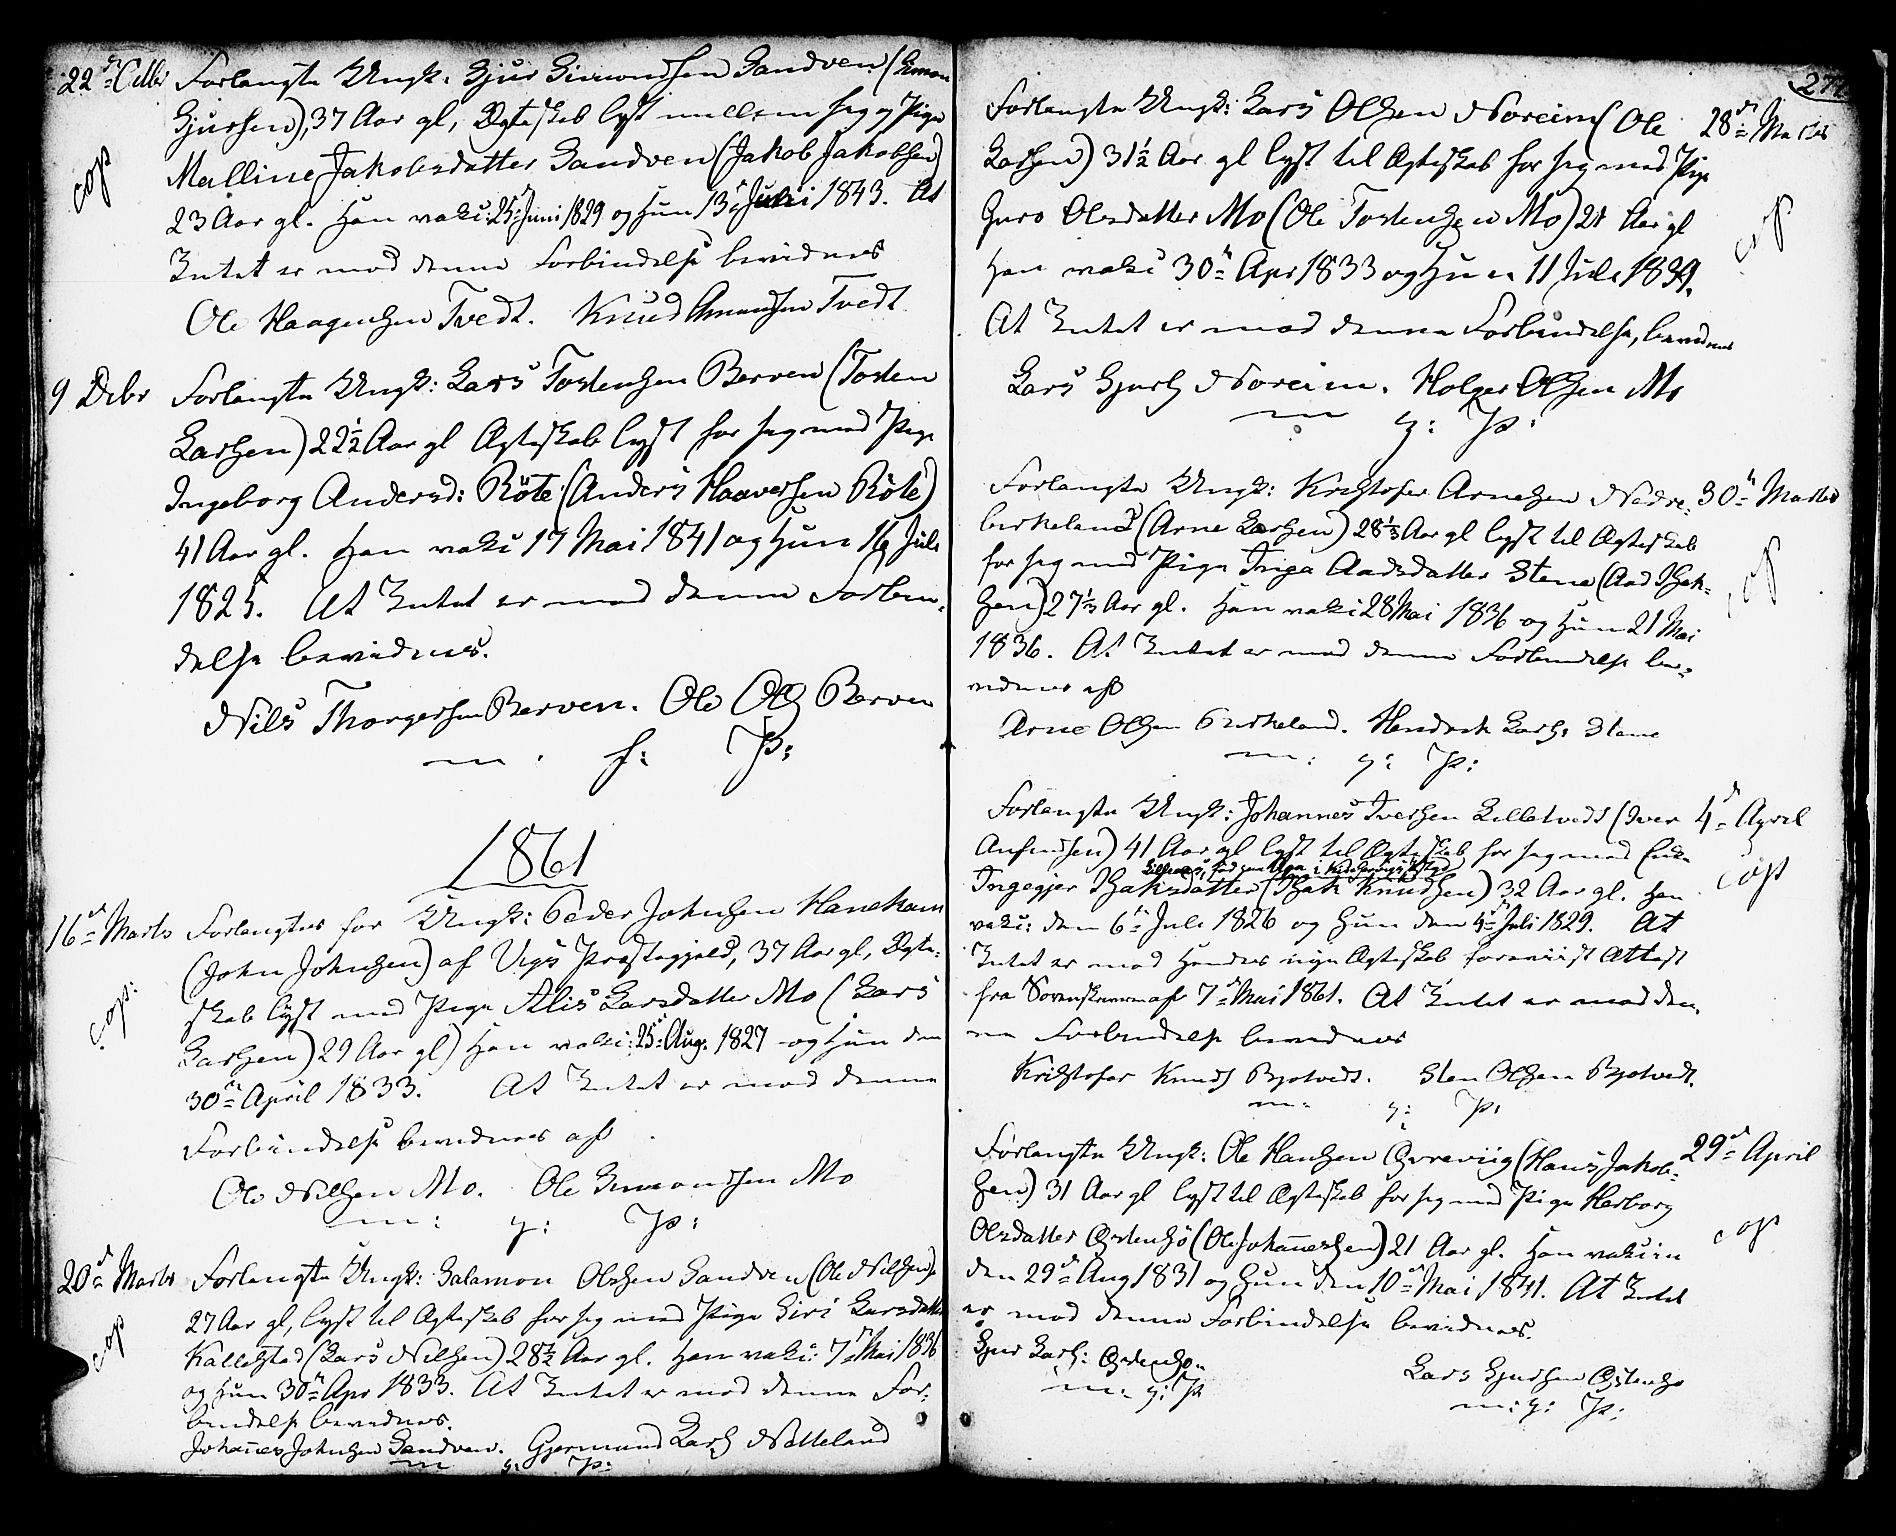 22de Octbr Forlangte Ungk. Sjur Simondsen Sandven (Simon
Sjursen), 37 Aar gl, Ægteskab lyst mellem sig og Pige
cop
Malline Jakobsdatter Sandven (Jakob Jakobsen)
23 Aar gl. Han vakc: 25 Juni 1829 og Hun 13de Juli 1843. At
Intet er mod denne Forbindelse bevidnes
Ole Haagensen Tvedt. Knud Amundsen Tvedt
9 Debr Forlangte Ungk: Lars Tostensen Berven (Tosten
Larsen) 22½ Aar gl Ægteskab lyst for sig med Pige
Ingeborg Andersd: Röte (Anders Haaversen Röte)
41 Aar gl. Han vakc 17 Mai 1841 og Hun 16 Juli
1825. At Intet er mod denne Forbin-
delse bevidnes.
Nils Thorgersen Berven. Ole Ols Berven
m. f: P:
1861
16de Marts Forlangtes for Ungk: Peder Johnsen Hanekam
(John Johnsen) af Vigs Præstegjeld, 37 Aar gl, Ægte-
skab lyst med Pige Alis Larsdatter Mo (Lars
cop:
Larsen) 29 Aar gl) Han vakc: 25 Aug. 1827 og Hun den
30te April 1833. At Intet er mod denne
Forbindelse bevidnes af
Ole Nilsen Mo. Ole Simondsen Mo
m: g: P:
20de Marts Forlangte Ungk: Salamon Olsen Sandven (Ole Nilsen),
27 Aar gl, lyst til Ægteskab for sig med Pige Siri Larsdatter
cop
Kallestad (Lars Nilsen) 28½ Aar gl. Han vakc: 7de Mai 1836
og Hun 30te Apr 1833. At Intet er mod denne For-
bindelse bevidnes.
Johannes Johnsen Sandven. Gjermund Lars Netteland
m g: P:
277
Forlangte Ungk: Lars Olsen Noreim (Ole 28de Marts
Larsen) 31½ Aar gl lyst til Ægteskab for sig med Pige
Guro Olsdatter Mo (Ole Tostensen Mo) 21 Aar gl
cop
Han vakc 30te Apr 1833 og Hun 11 Juli 1839.
At Intet er mod denne Forbindelse, bevidnes
Lars Sjurs Noreim. Holger Olsen Mo
m g: P:
Forlangte Ungk: Kristofer Arnesen Nedre- 30te Marts
birkeland (Arne Larsen) 28⅓ Aar gl lyst til Ægteskab
for sig med Pige Inga Aadsdatter Stene (Aad Isak-
cop
sen) 27⅓ Aar gl. Han vakc 28 Mai 1836 og Hun 21 Mai
1836. At Intet er mod denne Forbindelse be-
vidnes af
Arne Olsen Birkeland. Hendrik Lars: Stene
m: g: P:
Forlangte Ungk: Johannes Iversen Lilletvedt (Iver 4de April
Anfindsen) 41 Aar gl lyst til Ægteskab for sig med Enke
cop
Ingegjer Isaksdatter (Isak Knudsen) 32 Aar gl. Han
vakc: den 6te Juli 1826 og Hun den 4de Juli 1829. At
Intet er mod Hendes nye Ægteskab foreviist Attest
fra Sorenskriveren af 7de Mai 1861. At Intet er mod den-
ne Forbindelse bevidnes
Kristofer Knuds Byrtvedt. Sten Olsen Byrtvedt.
m: g: P:
Forlangte Ungk: Ole Hansen Øvreviig (Hans Jakob- 29de April
sen) 31 Aar gl lyst til Ægteskab for sig med Pige Herborg
cop
Olsdatter Østensø (Ole Johannessen) 21 Aar gl. Han vakcin
den 29de Aug 1831 og Hun den 10de Mai 1841. At Intet
er mod denne Forbindelse bevidnes.
Sjur Lars: Østensø. Lars Sjursen Østensø
m. g: P m: g: P: